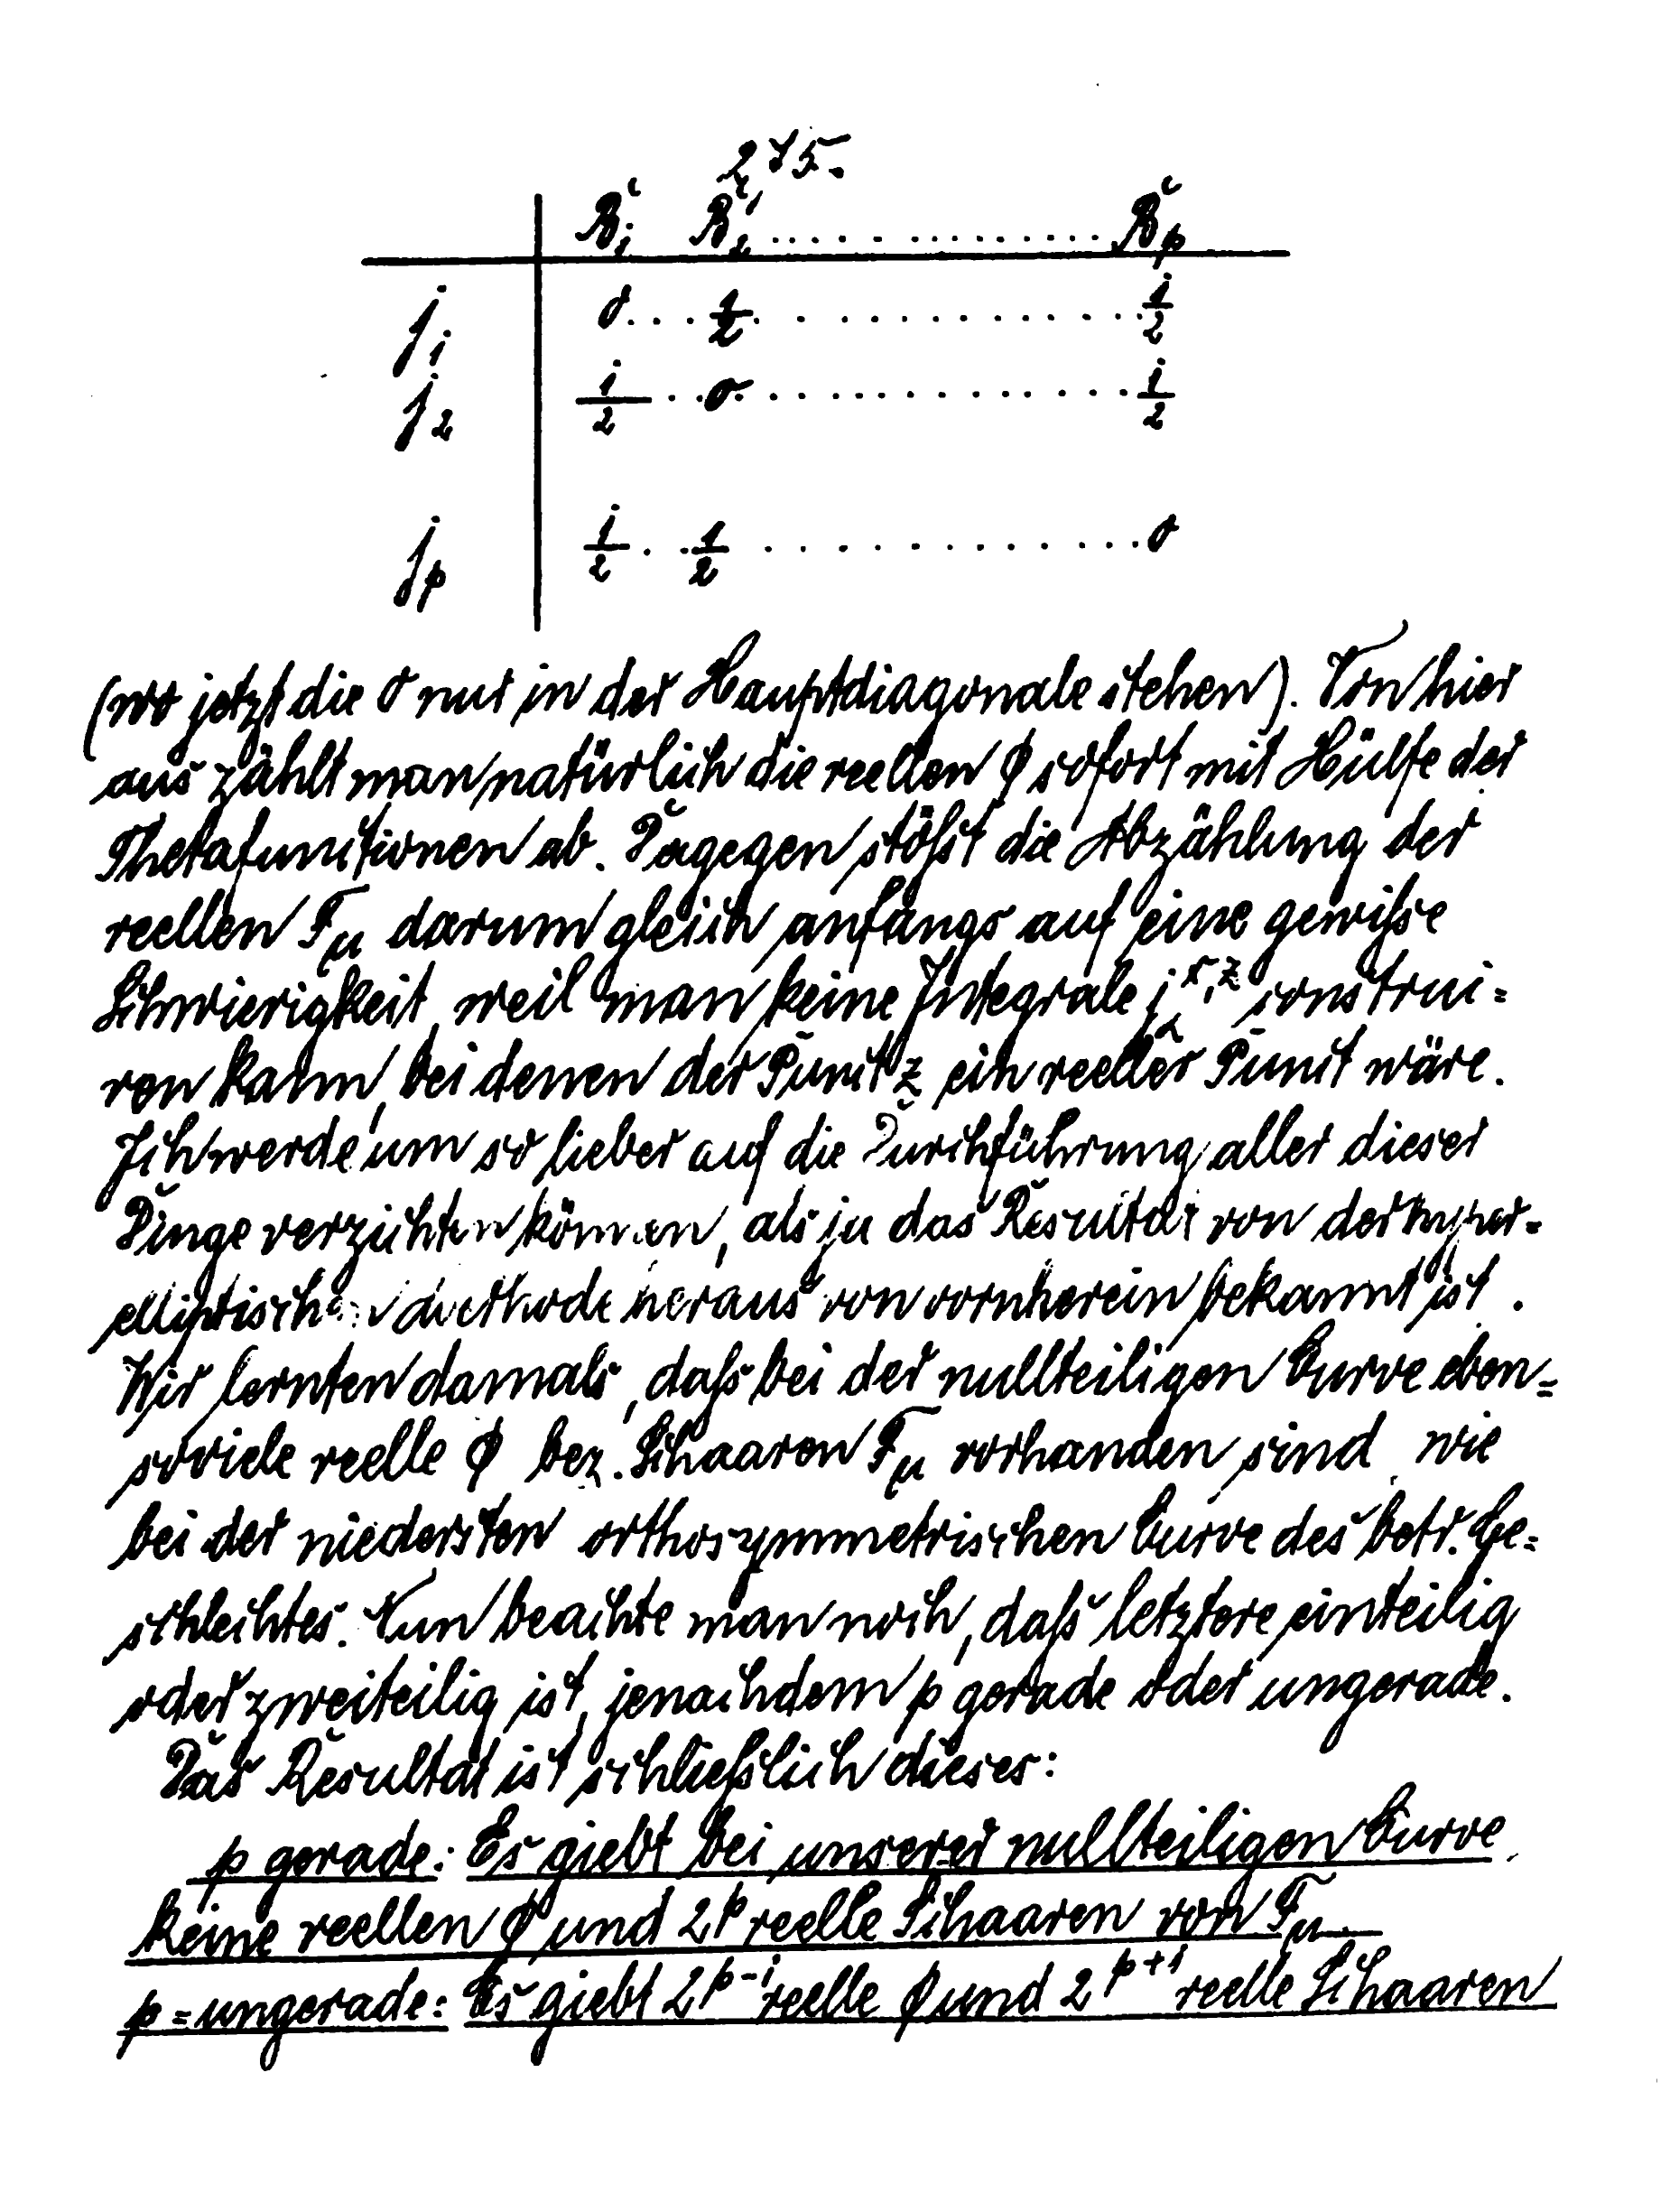 275.
B₁' B₂' .................. Bₚ'
j₁ 0 . . . 1/2 . . . . . . . . . . . . . . 1/2
j₂ 1/2 . . 0 . . . . . . . . . . . . . . 1/2
jₚ 1/2 . . 1/2 . . . . . . . . . . . . 0
(wo jetzt die 0 nur in der Hauptdiagonale stehen). Von hier
aus zählt man natürlich die reellen ϕ sofort mit Hülfe der
Thetafunctionen ab. Dagegen stößt die Abzählung der
reellen Γμ darum gleich anfangs auf eine gewiße
Schwierigkeit, weil man keine Integrale j_α^{x,z} construi=
ren kann, bei denen der Punct z ein reeller Punct wäre.
Ich werde um so lieber auf die Durchführung aller dieser
Dinge verzichten können, als ja das Resultat von der hyper=
elliptischen Methode heraus von vornherein bekannt ist.
Wir lernten damals, daß bei der nullteiligen Curve eben=
soviele reelle ϕ bez. Schaaren Γμ vorhanden sind, wie
bei der niedersten orthosymmetrischen Curve des betr. Ge=
schlechtes. Nun beachte man noch, daß letztere einteilig
oder zweiteilig ist, jenachdem p gerade oder ungerade.
Das Resultat ist schließlich dieses:
p gerade: Es giebt bei unserer nullteiligen Curve
keine reellen ϕ und 2^p reelle Schaaren von Γμ.
p = ungerade: Es giebt 2^{p-1} reelle ϕ und 2^{p+1} reelle Schaaren